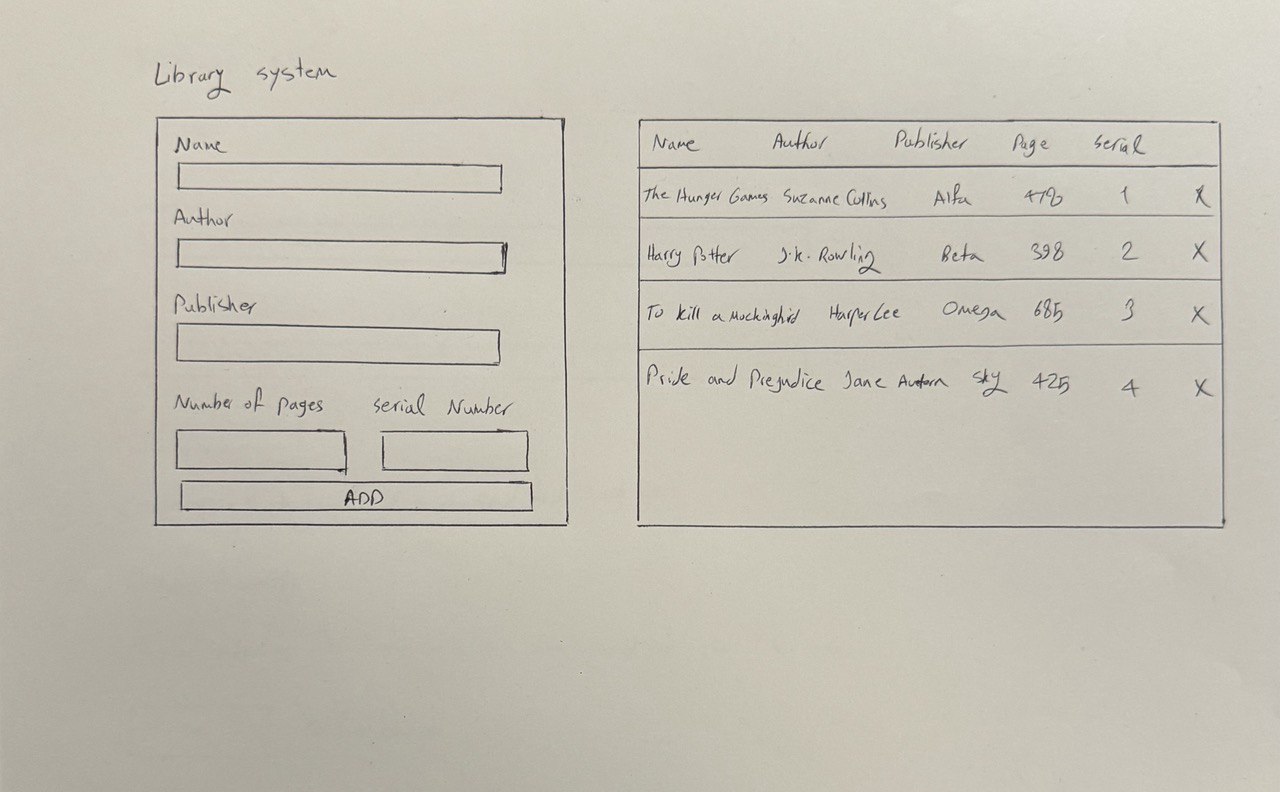 Library system
Name
Author
Publisher
Number of pages serial Number
ADD
Name Author Publisher Page serial
The Hunger Games Suzanne Collins Alfa 1 X
Harry Potter J.K. Rowling Beta 398 2 X
To kill a Mockingbird Harper Lee Omega 685 3 X
Pride and Prejudice Jane sky 425 4 X